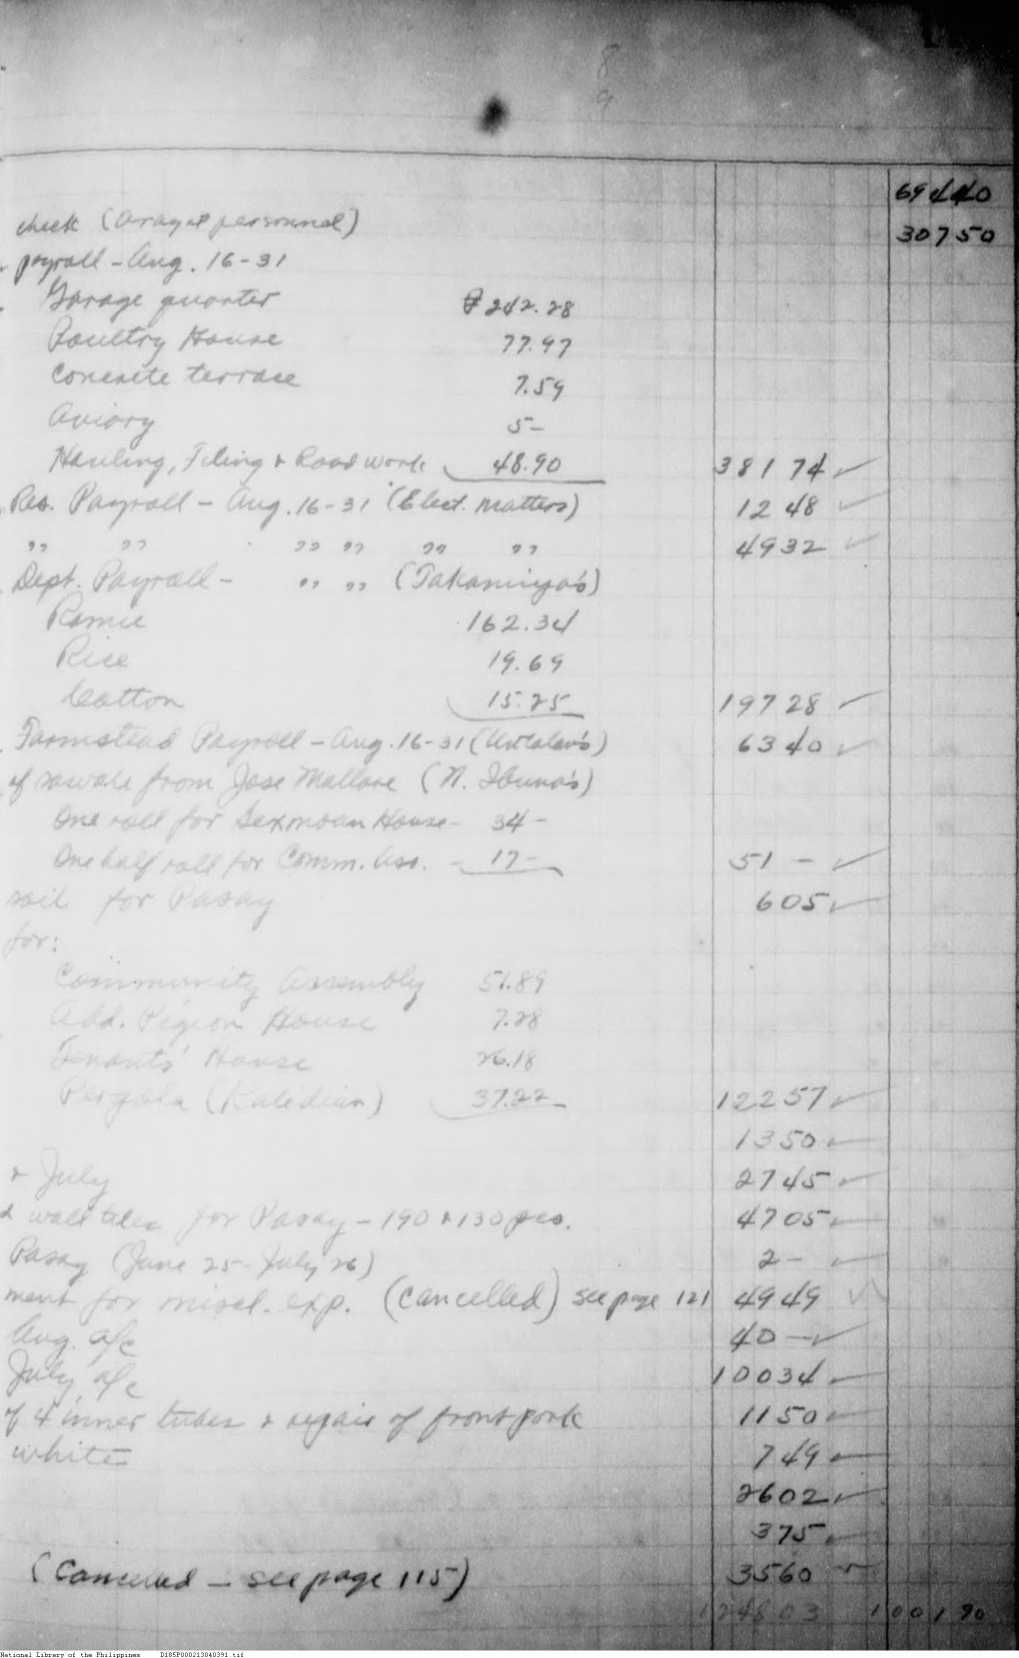 8
9
69440
check (Arayat personnel) 30750
payroll - Aug. 16-31
Garage quarter ₱242.28
Poultry House 77.97
Concrete terrace 7.59
Aviary 5-
Hauling, Filing & Road work 48.90 38174 ✓
Res. Payroll - Aug. 16-31 (Elect. matters) 1248 ✓
" " " " " " 4932 ✓
Dept. Payroll - " " (Takamiya's)
Ramie 162.34
Rice 19.69
Cotton 15.25 19728 ✓
Farmstead Payroll - Aug. 16-31 ( 6340 ✓
of sawale from Jose Mallare (N. Ibuna's)
One roll for Sexmoan House - 34-
One half roll for Comm. Ass. - 17- 51 - ✓
soil for Pasay 605 ✓
for:
Community Assembly 51.89
Add. Pigeon House 7.28
Tenants' House 26.18
Pergola ( 37.22 12257 ✓
1350 ✓
& July 2745 ✓
& wall tiles for Pasay - 190 & 130 pcs. 4705 ✓
Pasay (June 25 - July 26) 2- ✓
ment for miscl. exp. (Cancelled) see page 121 4949 ✓
Aug. a/c 40 - ✓
July a/c 10034 ✓
of 4 inner tubes & repair of front fork 1150 ✓
white 749 ✓
2602 ✓
375 ✓
(Cancelled - see page 115) 3560 ✓
124803 100190
National Library of the Philippines D185P000213040391.tif